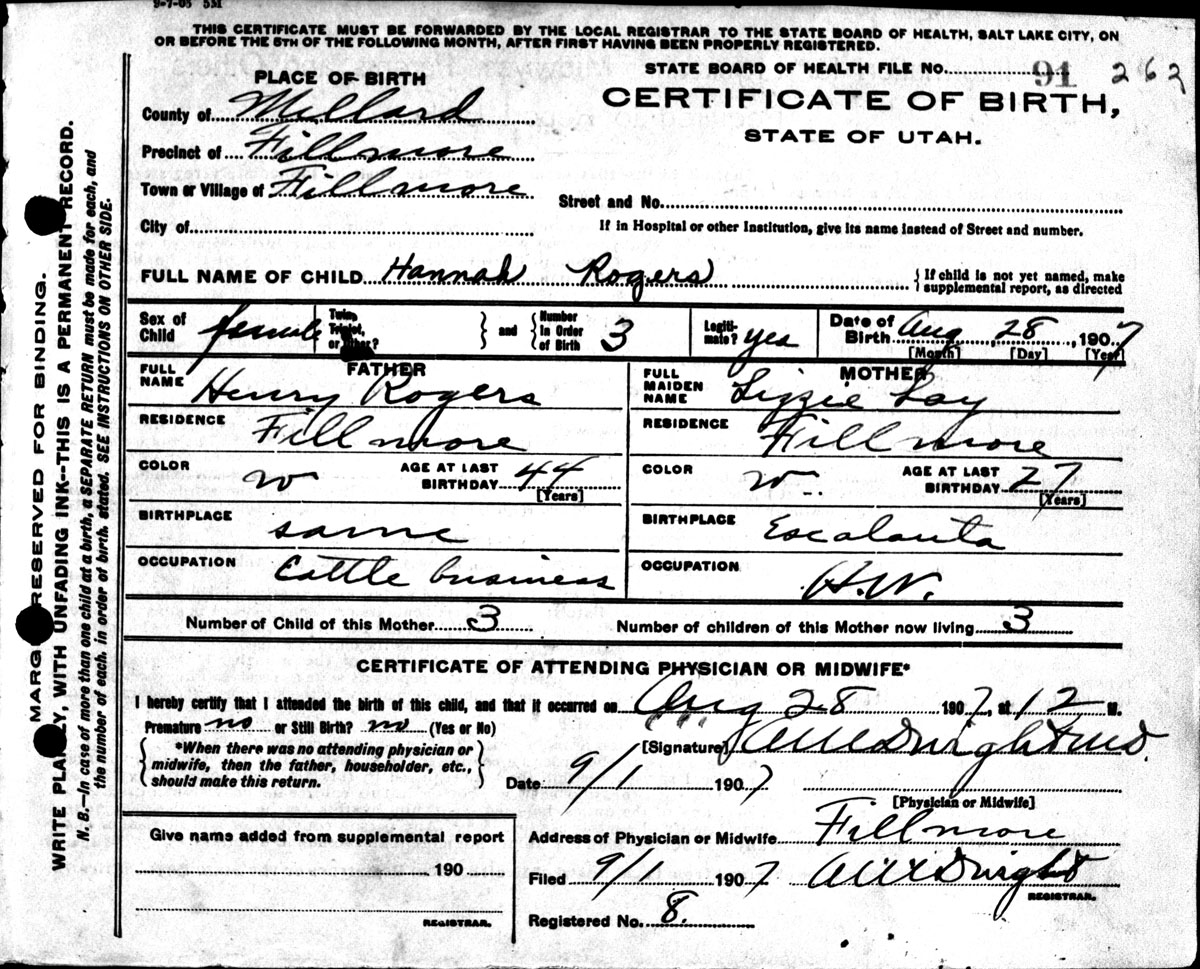 9-7-05 5M
THIS CERTIFICATE MUST BE FORWARDED BY THE LOCAL REGISTRAR TO THE STATE BOARD OF HEALTH, SALT LAKE CITY, ON
OR BEFORE THE 5TH OF THE FOLLOWING MONTH, AFTER FIRST HAVING BEEN PROPERLY REGISTERED.
STATE BOARD OF HEALTH FILE NO. 91 262
PLACE OF BIRTH
CERTIFICATE OF BIRTH,
STATE OF UTAH.
County of Millard
Precinct of Fillmore
Town or Village of Fillmore
Street and No.
City of
If in Hospital or other Institution, give its name instead of Street and number.
FULL NAME OF CHILD Hannah Rogers
{ If child is not yet named, make
supplemental report, as directed
Sex of Child female
Twin, Triplet, or other? } and { Number in Order of Birth 3
Legitimate? yes
Date of Birth Aug, 28, 1907
[Month] [Day] [Year]
FATHER
FULL NAME Henry Rogers
RESIDENCE Fillmore
COLOR W AGE AT LAST BIRTHDAY 44
[Years]
BIRTHPLACE same
OCCUPATION Cattle business
MOTHER
FULL MAIDEN NAME Lizzie Lay
RESIDENCE Fillmore
COLOR W. AGE AT LAST BIRTHDAY 27
[Years]
BIRTHPLACE Escalanta
OCCUPATION H.W.
Number of Child of this Mother 3 Number of children of this Mother now living 3
CERTIFICATE OF ATTENDING PHYSICIAN OR MIDWIFE*
I hereby certify that I attended the birth of this child, and that it occurred on Aug 28 1907, at 12 M.
Premature no or Still Birth? no (Yes or No)
{ *When there was no attending physician or
midwife, then the father, householder, etc.,
should make this return. }
[Signature] Dwight MD.
Date 9/1 1907
[Physician or Midwife]
Give name added from supplemental report
190
REGISTRAR.
Address of Physician or Midwife Fillmore
Filed 9/1 1907 Dwight
REGISTRAR.
Registered No. 8.
MARGIN RESERVED FOR BINDING.
WRITE PLAINLY, WITH UNFADING INK--THIS IS A PERMANENT RECORD.
N. B.—In case of more than one child at a birth, a SEPARATE RETURN must be made for each, and
the number of each, in order of birth, stated. SEE INSTRUCTIONS ON OTHER SIDE.